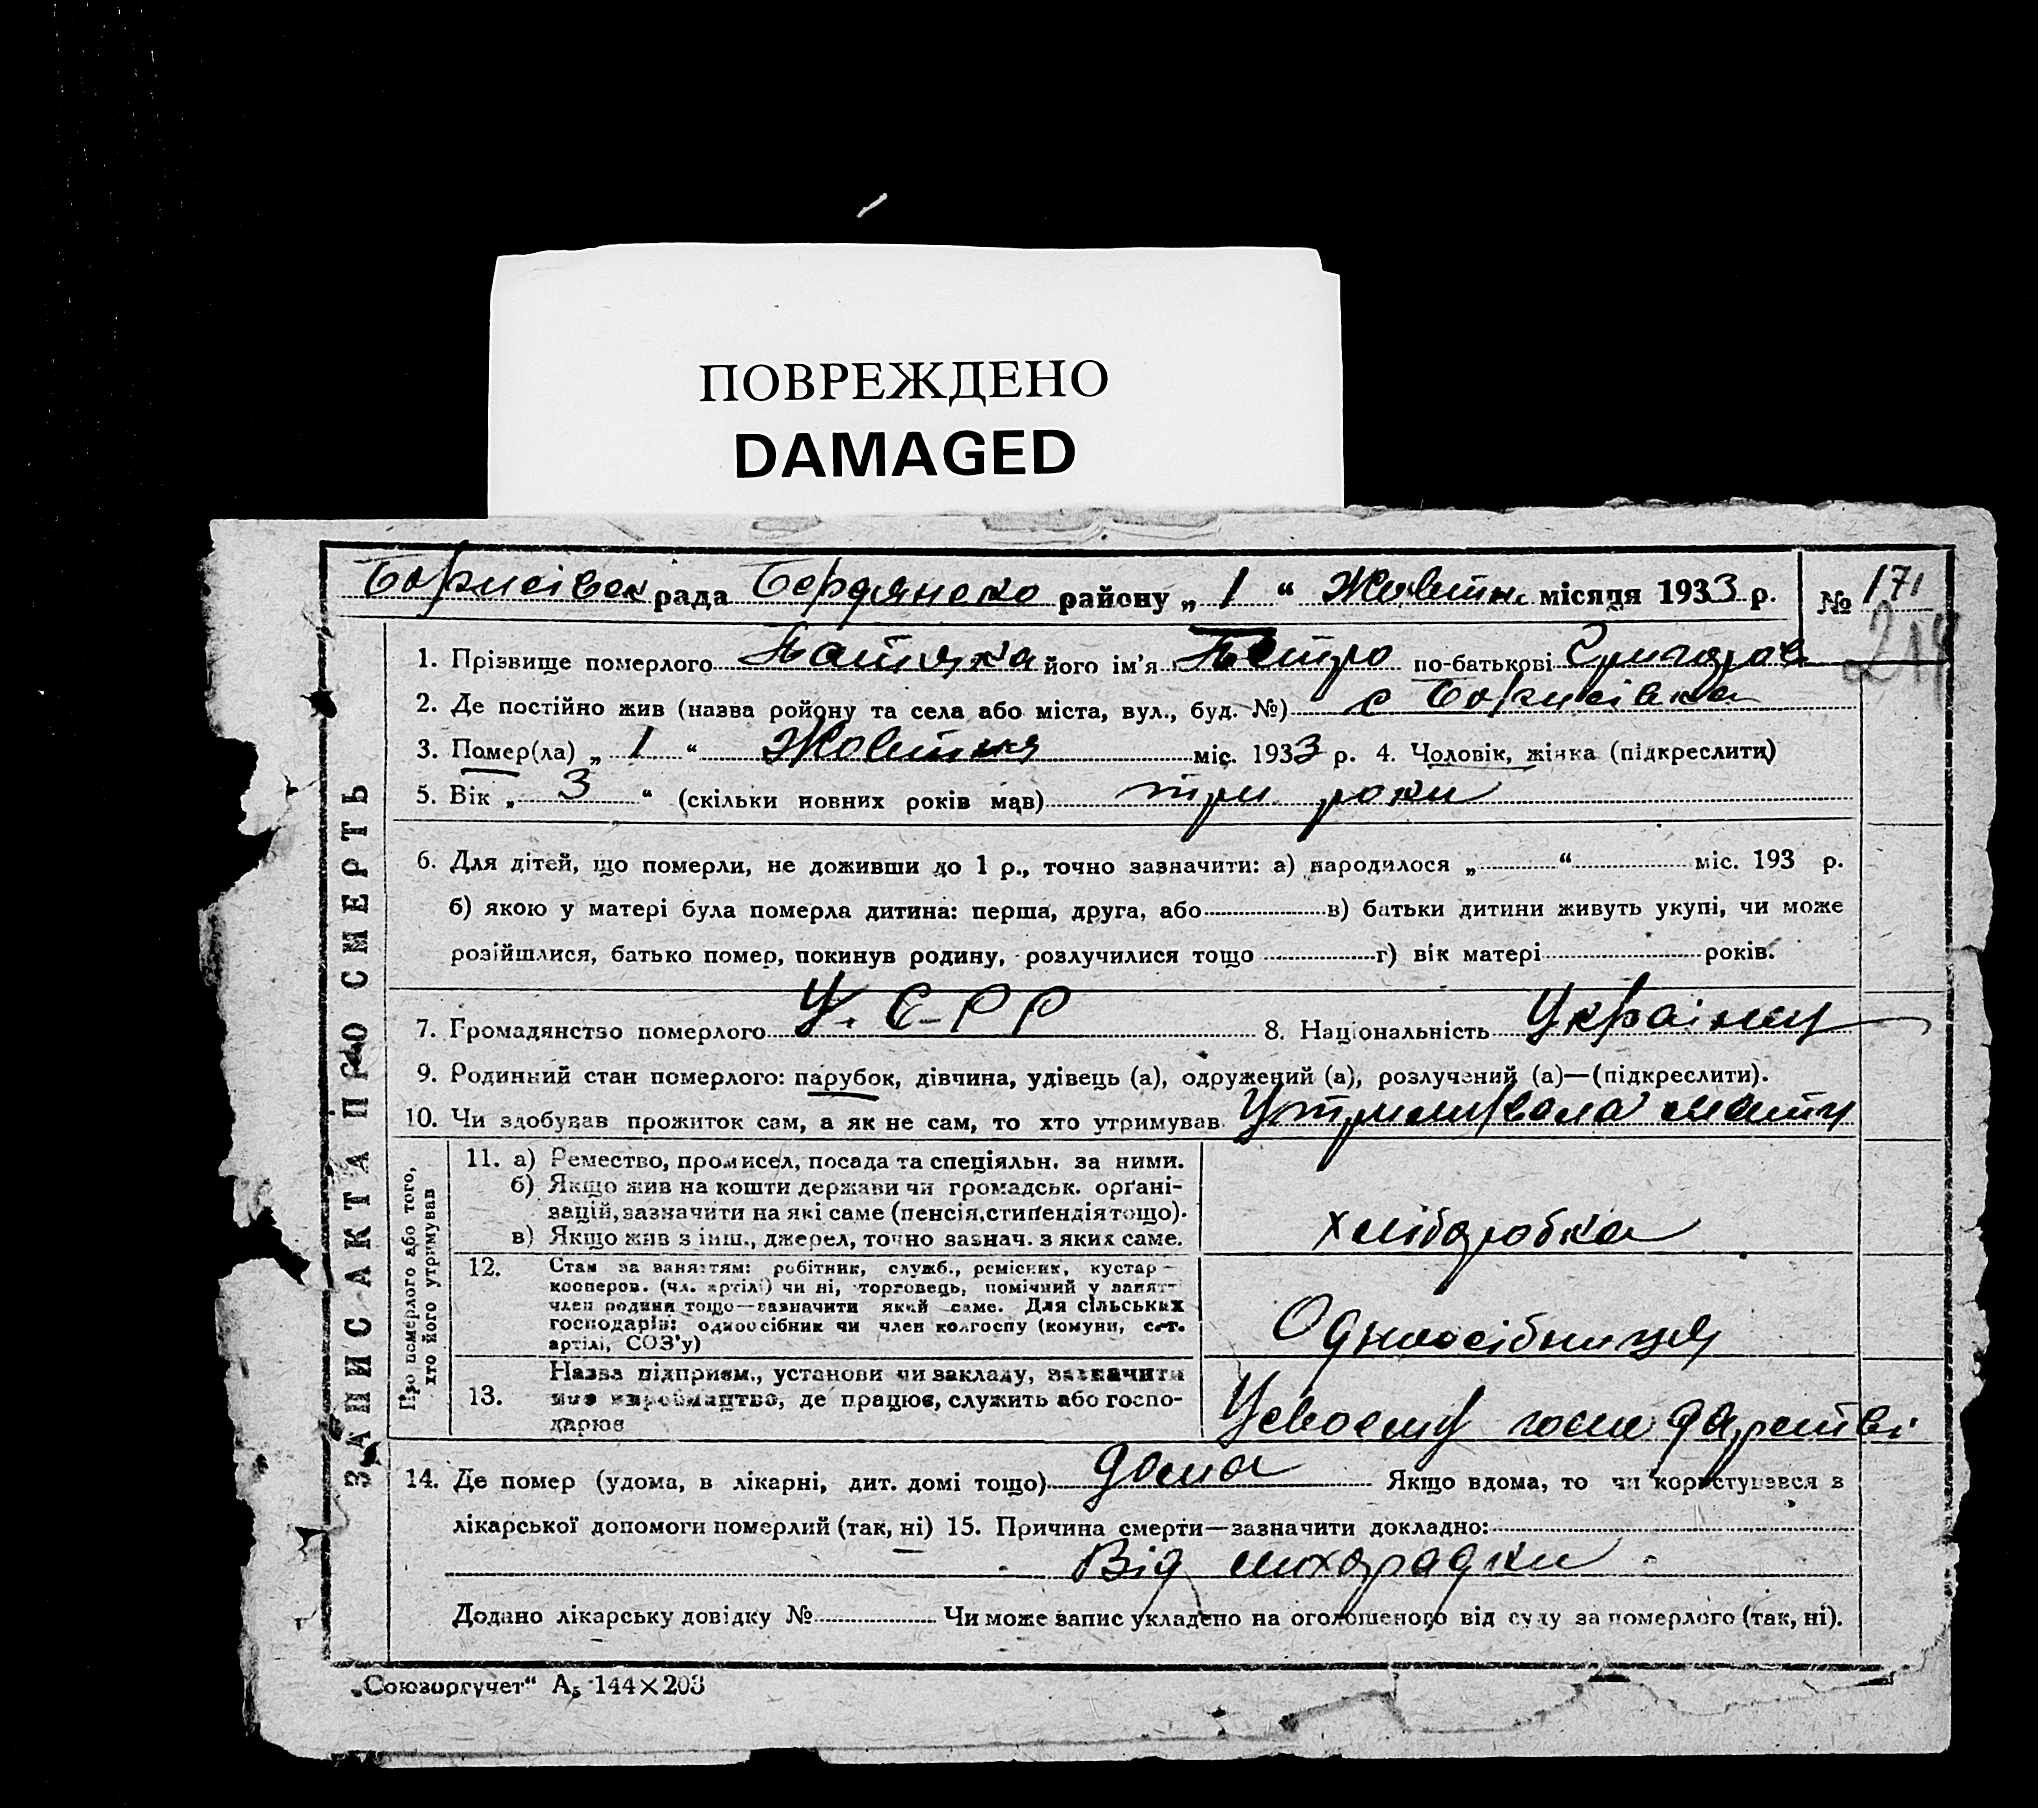 ПОВРЕЖДЕНО
DAMAGED
Борисівск рада Бердянсько району „ 1 “ Жовтн. місяця 1933 р. № 171
214
1. Прізвище померлого його ім'я Петро по-батькові Григоров
2. Де постійно жив (назва ройону та села або міста, вул., буд. №) с Борисівка
3. Помер(ла) „ 1 “ Жовтня міс. 1933 р. 4. Чоловік, жінка (підкреслити)
5. Вік „ 3 “ (скільки новних років мав) три роки
6. Для дітей, що померли, не доживши до 1 р., точно зазначити: а) народилося „ “ міс. 193 р.
б) якою у матері була померла дитина: перша, друга, або в) батьки дитини живуть укупі, чи може
розійшлися, батько помер, покинув родину, розлучилися тощо г) вік матері років.
7. Громадянство померлого У. С-РР 8. Національність Українець
9. Родинний стан померлого: парубок, дівчина, удівець (а), одружений (а), розлучений (а)—(підкреслити).
10. Чи здобував прожиток сам, а як не сам, то хто утримував Утримувала мати
ЗАПИС АКТА ПРО СМЕРТЬ
Про померлого або того,
хто його утримував
11. а) Ремество, промисел, посада та спеціяльн. за ними.
б) Якщо жив на кошти держави чи громадськ. орґані-
зацій, зазначити на які саме (пенсія, стипендія тощо).
в) Якщо жив з інш., джерел, точно зазнач. з яких саме.
хліборобка
12. Стан за заняттям: робітник, служб., ремісник, кустар—
кооперов. (чл. артілі) чи ні, торговець, помічний у занятт
член родини тощо—зазначити який саме. Для сільських
господарів: одноосібник чи член колгоспу (комуни, с.-г.
артілі, СОЗ'у)
Одноосібниця
13. Назва підприєм., установи чи закладу, зазначити
яке виробництво, де працює, служить або госпо-
дарює
Усвоєму господарстві
14. Де помер (удома, в лікарні, дит. домі тощо) дома Якщо вдома, то чи користувався в
лікарської допомоги померлий (так, ні) 15. Причина смерти—зазначити докладно:
Від лихорадки
Додано лікарську довідку № Чи може запис укладено на оголошеного від суду за померлого (так, ні).
„Союзоргучет“ А5 144×203